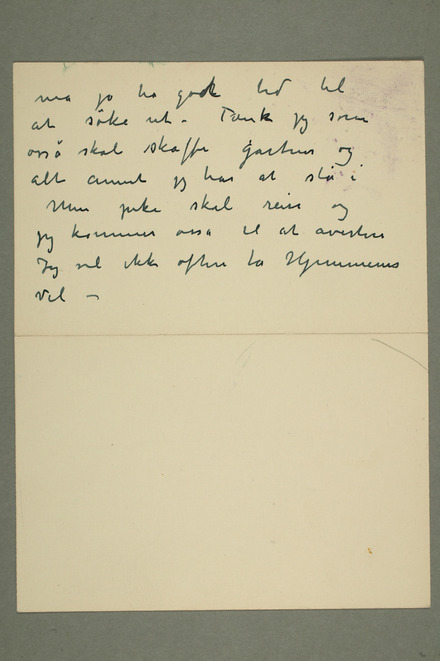 må jo ha godt tid til
at söke ut – Tænk jeg som
også skal skaffe gartner og
alt annet jeg har at stå i
Min pike skal reise og
jeg kommer også til at avertere
Jeg vil ikke oftere ha Hjemmenes
Vel –